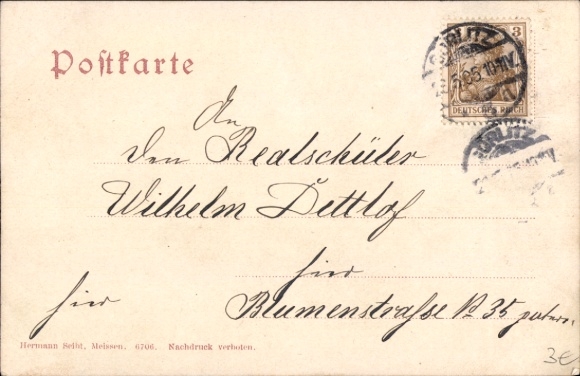 Postkarte
GÖRLITZ
3
DEUTSCHES REICH
GÖRLITZ
An
den Realschüler
Wilhelm Dettlof
hier
hier
Blumenstraße No 35 patern.
Hermann Seibt, Meissen. 6706. Nachdruck verboten.
3€